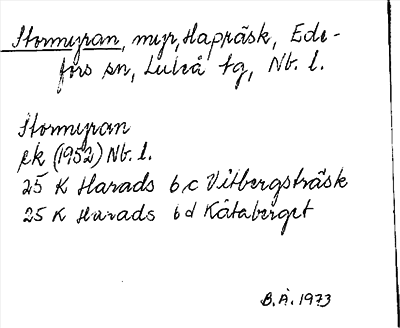 Stormyran, myr, Hapräsk, Ede-
fors sn, Luleå tg, Nb. l.
Stormyran
ek (1952) Nb. l.
25 K Harads 6 c Vitbergsträsk
25 K Harads 6 d Kåtaberget
B.Å. 1973